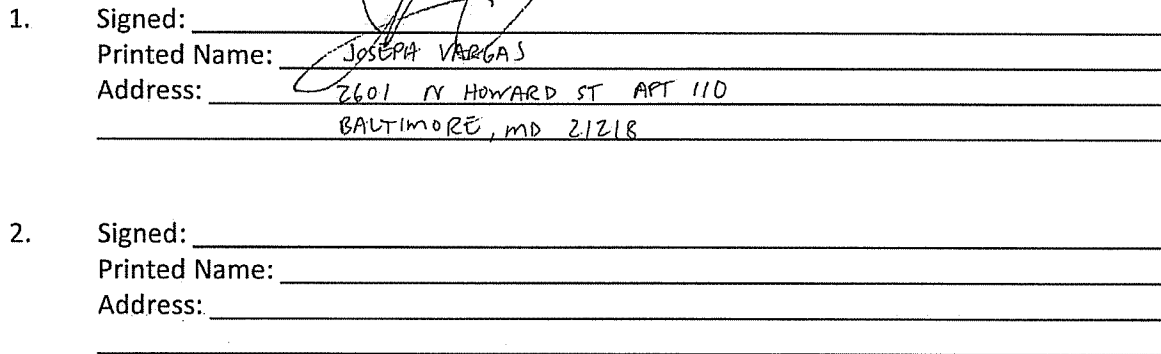 1. Signed:
Printed Name: JOSEPH VARGAS
Address: 2601 N HOWARD ST APT 110
BALTIMORE, MD 21218
2. Signed:
Printed Name:
Address: